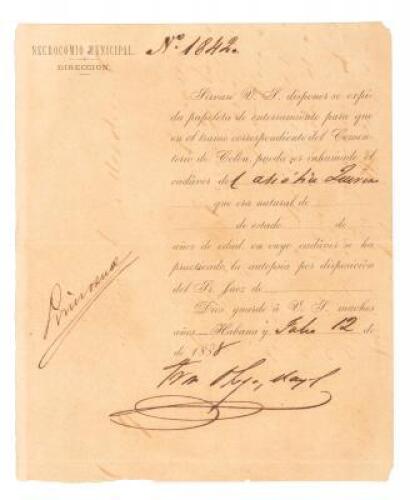 NECROCOMIO MUNICIPAL.
DIRECCION.
Nº 1842.
Sírvase V. S. disponer se expi-
da papeleta de enterramiento para que
en el tramo correspondiente del Cemen-
terio de Colón, pueda ser inhumado el
cadáver del asiático
que era natural de
de estado de
años de edad, en cuyo cadáver se ha
practicado la autopsia por disposición
del Sr. Juez de
Dios guarde á V. S. muchos
años.—Habana y Julio 12 de
de 1888